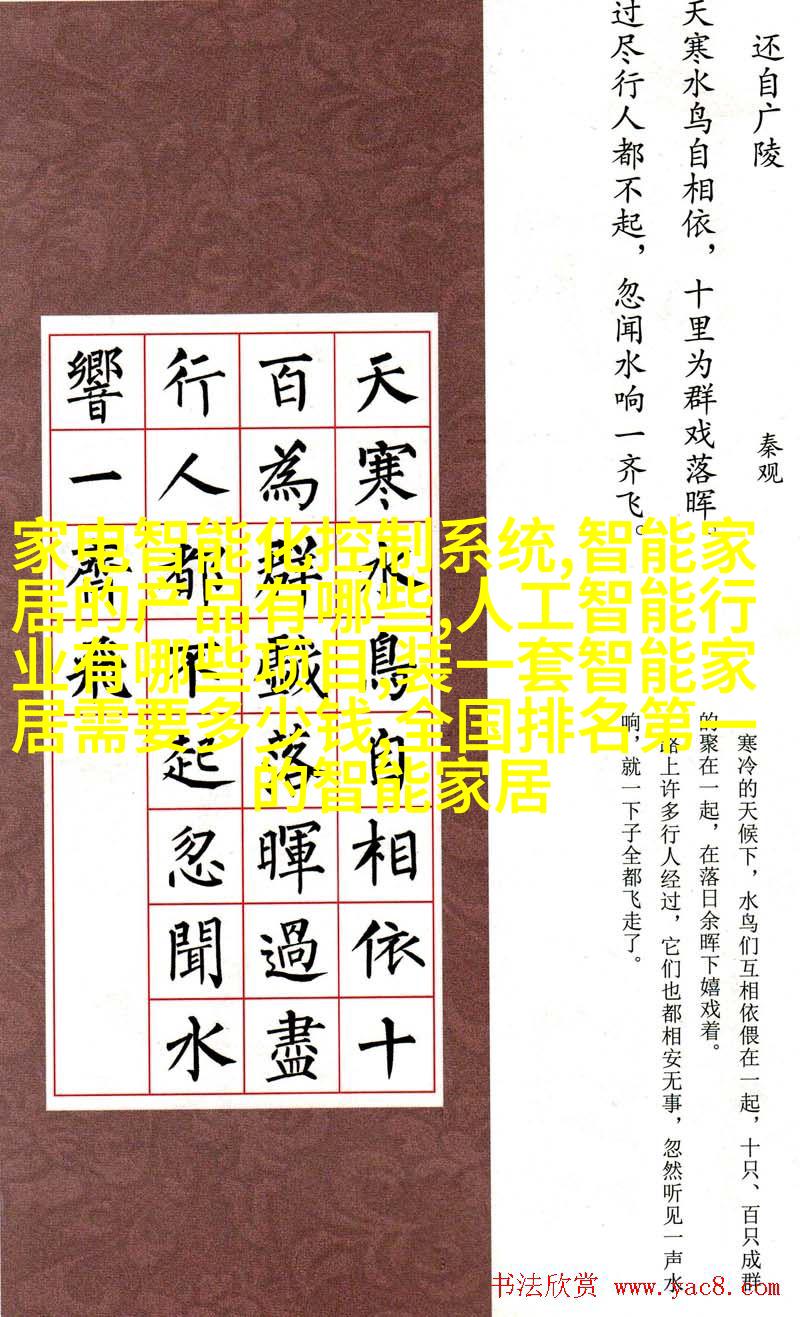 还自广陵
秦观
天寒水鸟自相依，十里为群戏落晖。
过尽行人都不起，忽闻水响一齐飞。
天寒水鳥自相依十
百為群戲落暉過盡
行人都不起忽聞水
響一齊飛
家电智能化控制系统,智能家
居的产品有哪些,人工智能行
业有哪些项目,装一套智能家
居需要多少钱,全国排名第一
的智能家居
寒冷的天候下，水鸟们互相依偎在一起，十只、百只成群
的聚在一起，在落日余晖下嬉戏着。
路上许多行人经过，它们也都相安无事，忽然听见一声水
响，就一下子全都飞走了。
书法欣赏 www.yac8.com